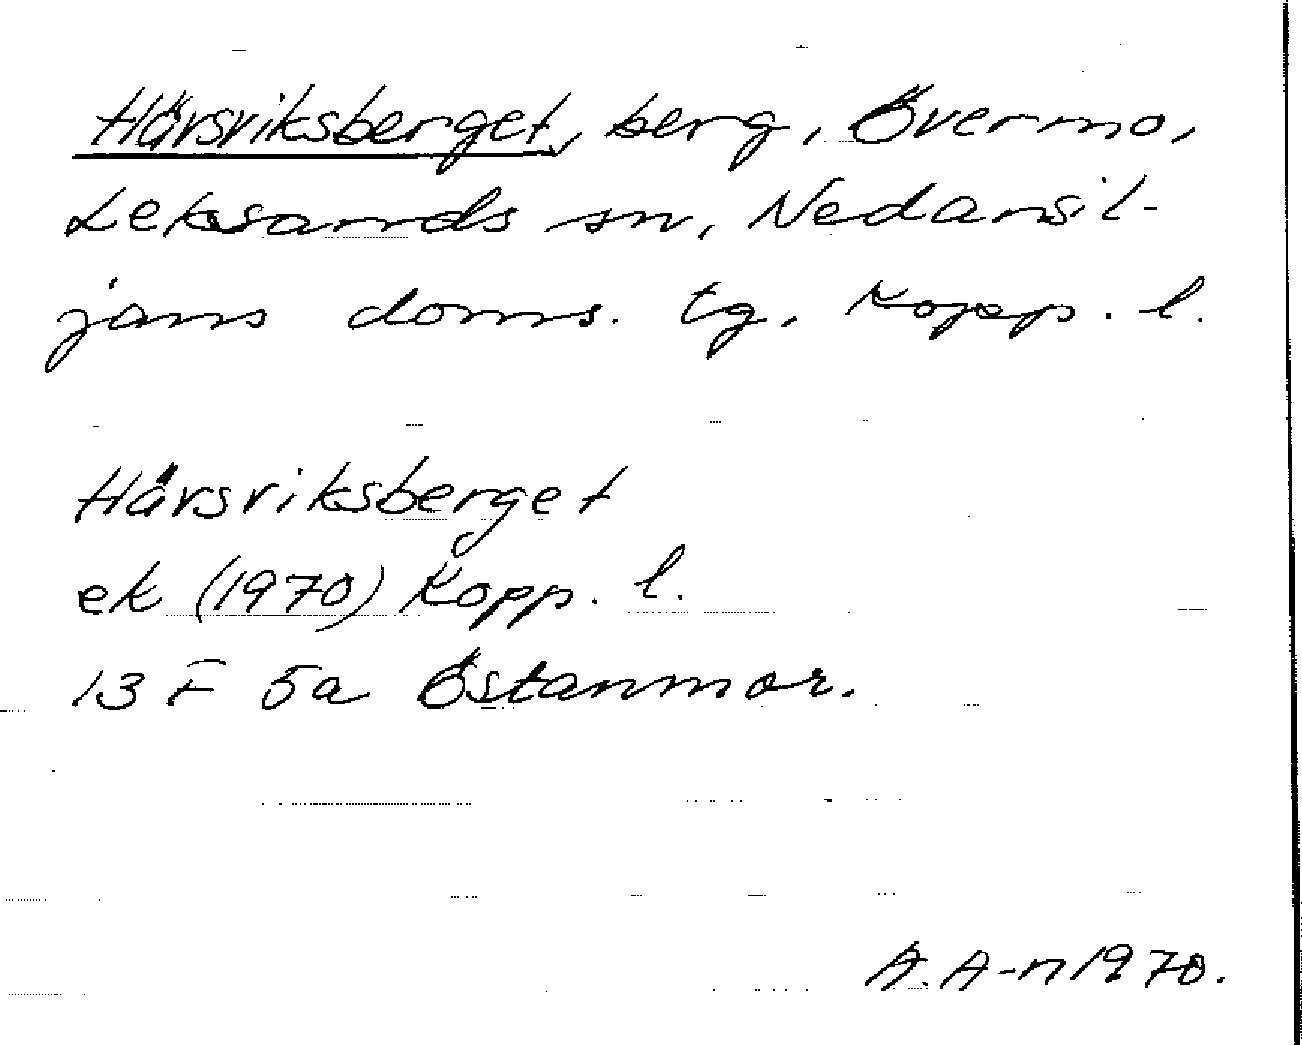 Hårsviksberget, berg, Övermo,
Leksands sn, Nedansil-
jans doms. tg, Kopp. l.
Hårsviksberget
ek (1970) Kopp. l.
13 F 5a Östanmor.
A. A-n 1970.